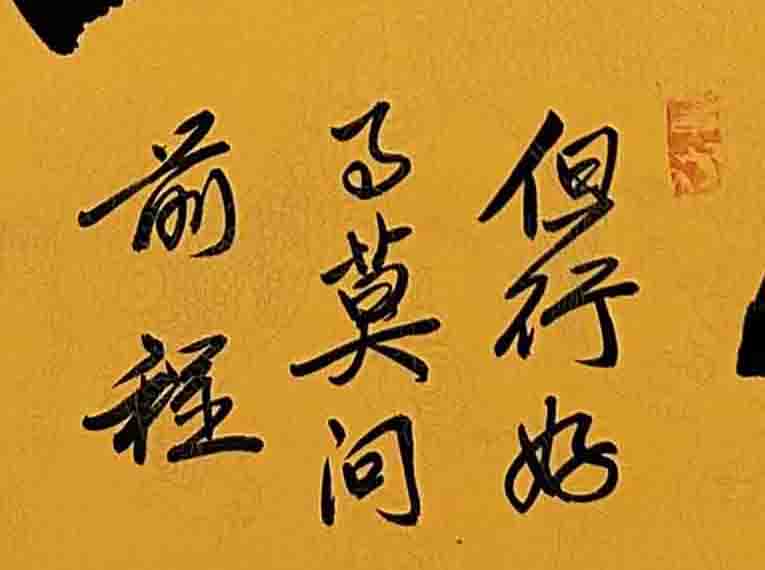 但行好
事莫问
前程